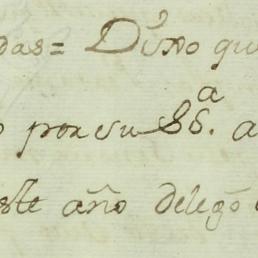 das= Dixo qu
por su Sª. a
este año delegó